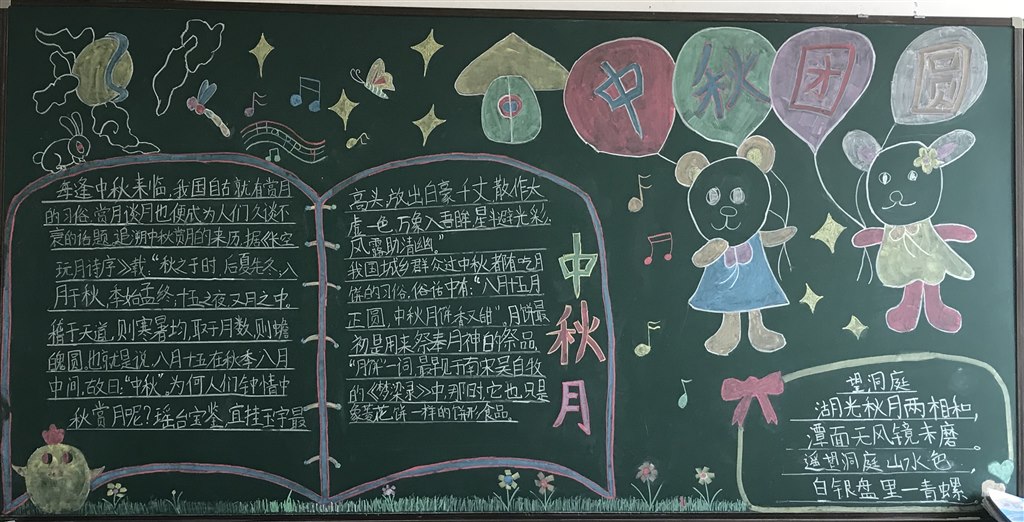 中秋团圆
每逢中秋来临,我国自古就有赏月
的习俗,赏月谈月也便成为人们久谈不
衰的话题,追溯中秋赏月的来历,据《长安
玩月诗序》载,"秋之于时,后夏先冬,八
月于秋,季始孟终;十五之夜,又月之中
稽于天道,则寒暑均,取于月数,则蟾
魄圆,也就是说,八月十五在秋季八月
中间,故曰:"中秋"。为何人们钟情中
秋赏月呢?瑶台宝鉴,宜挂玉宇最
高头,放出白豪千丈,散作太
虚一色,万象入吾眸,星斗避光彩,
风露助清幽"
我国城乡群众过中秋都有吃月
饼的习俗,俗话中有:"八月十五月
正圆,中秋月饼香又甜",月饼最
初是用来祭奉月神的祭品
"月饼"一词,最早见于南宋吴自牧
的《梦粱录》中,那时,它也只是
菱花饼一样的饼形食品。
中秋月
望洞庭
湖光秋月两相和,
潭面无风镜未磨。
遥望洞庭山水色,
白银盘里一青螺